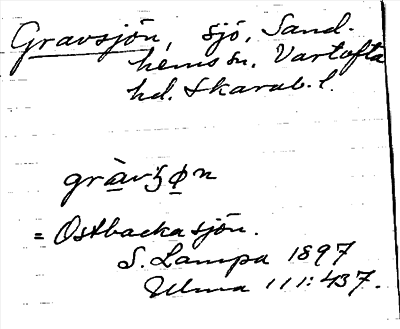 Gravsjön, sjö, Sand-
hems sn, Vartofta
hd. Skarab. l.
gràvʒøn
= Ostbackasjön.
S. Lampa 1897
Ulma 111:437.